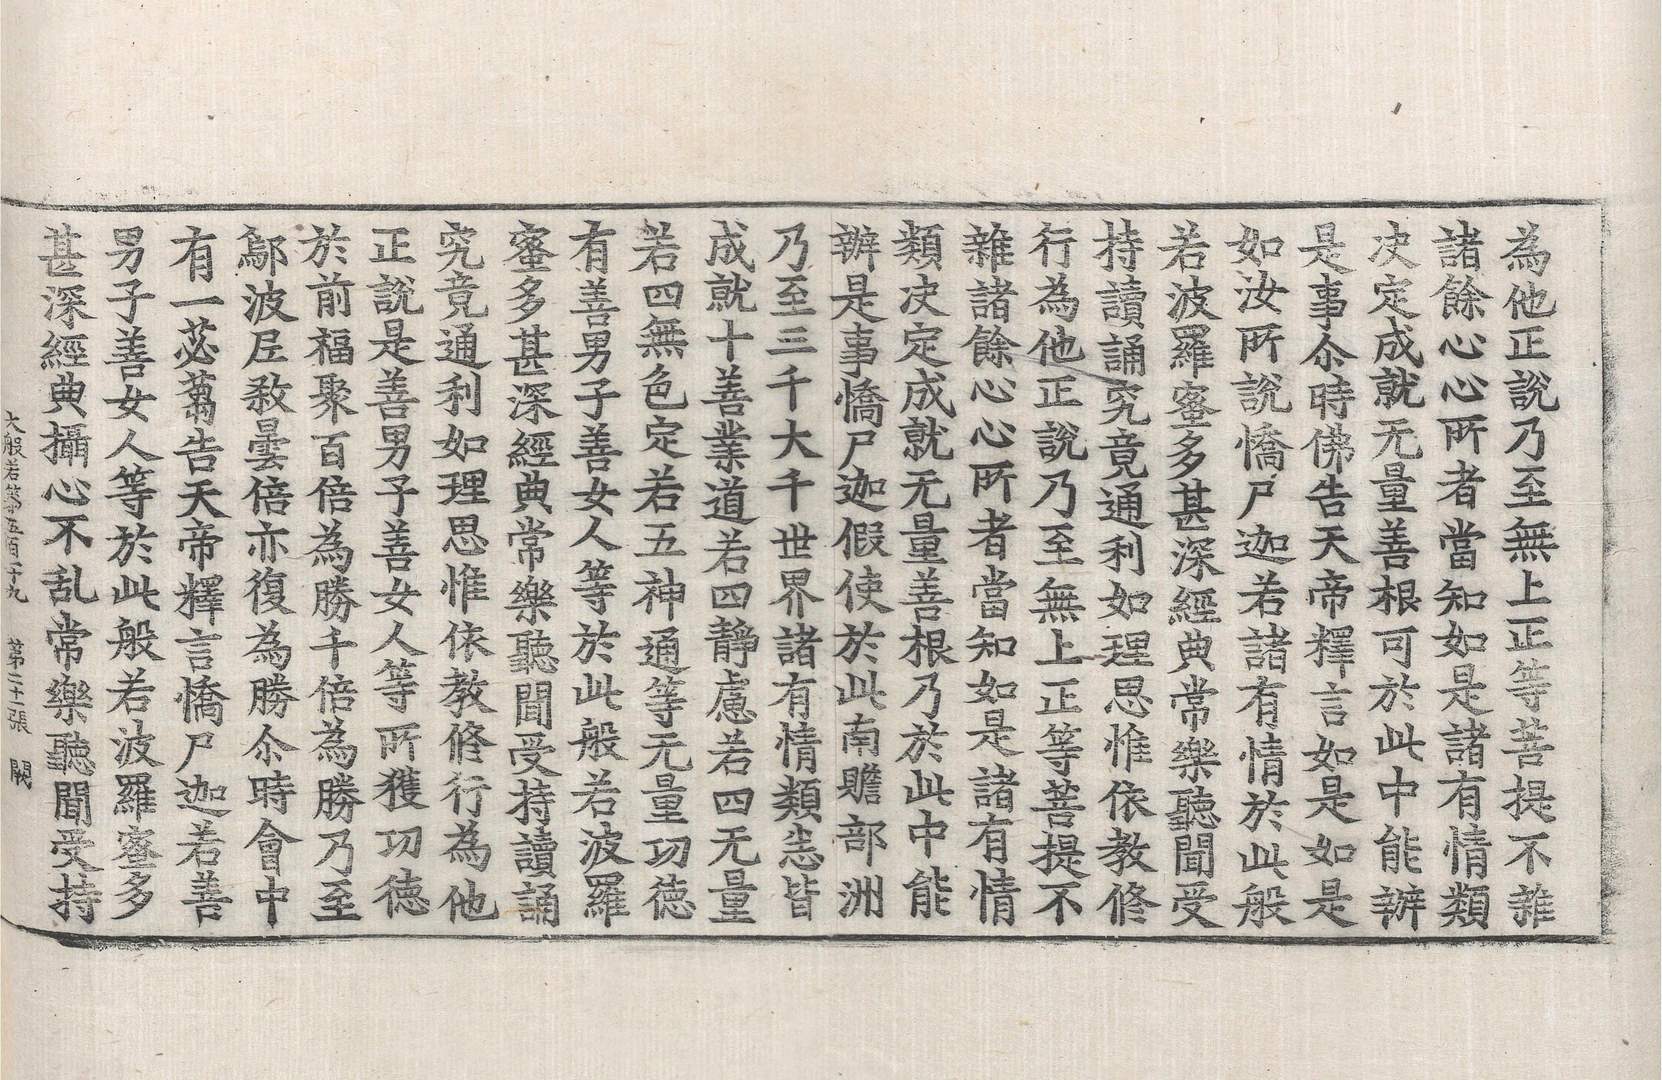 為他正說乃至無上正等菩提不雜
諸餘心心所者當知如是諸有情類
决定成就无量善根可於此中能辦
是事尒時佛告天帝釋言如是如是
如汝所說憍尸迦若諸有情於此般
若波羅蜜多甚深經典常樂聽聞受
持讀誦究竟通利如理思惟依教修
行為他正說乃至無上正等菩提不
雜諸餘心心所者當知如是諸有情
類决定成就无量善根乃於此中能
辦是事憍尸迦假使於此南贍部洲
乃至三千大千世界諸有情類悉皆
成就十善業道若四靜慮若四无量
若四無色定若五神通等无量功德
有善男子善女人等於此般若波羅
蜜多甚深經典常樂聽聞受持讀誦
究竟通利如理思惟依教修行為他
正說是善男子善女人等所獲功德
於前福聚百倍為勝千倍為勝乃至
鄔波尼敎曇倍亦復為勝尒時會中
有一苾蒭告天帝釋言憍尸迦若善
男子善女人等於此般若波羅蜜多
甚深經典攝心不乱常樂聽聞受持
大般若第五百卄九 第二十二張 闕